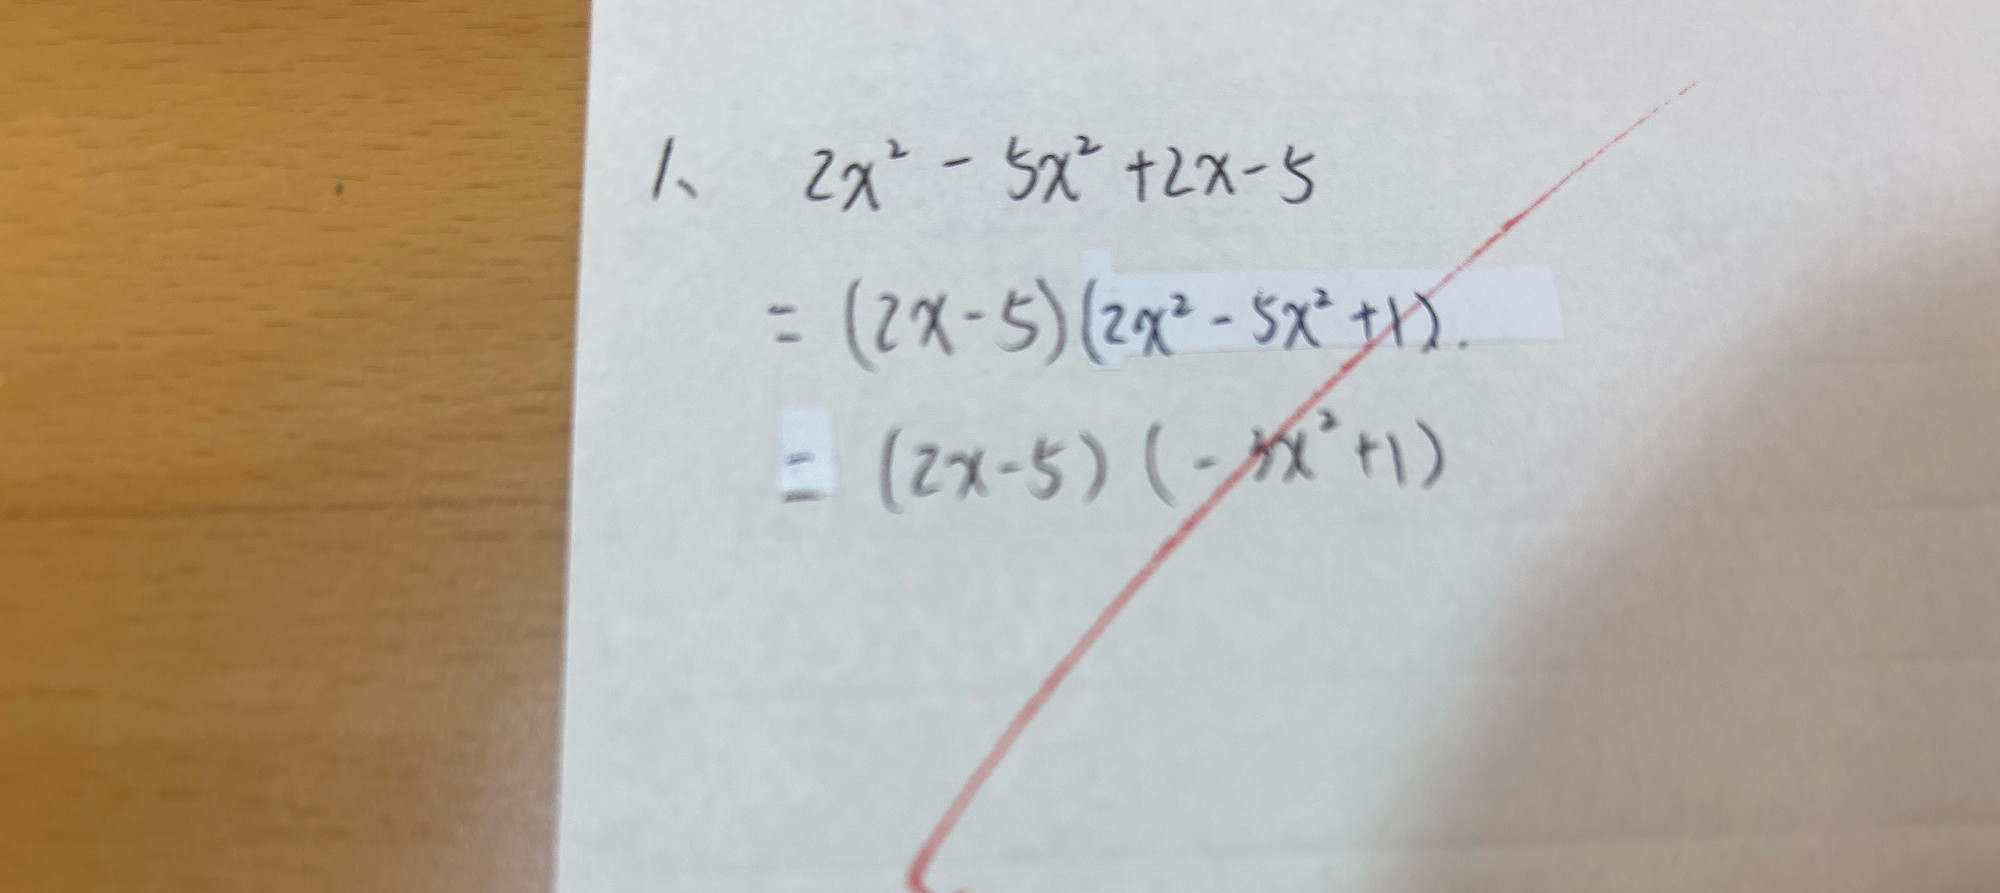 1、 2x² - 5x² + 2x - 5
= (2x - 5)(2x² - 5x² + 1).
= (2x - 5) (- 3x² + 1)